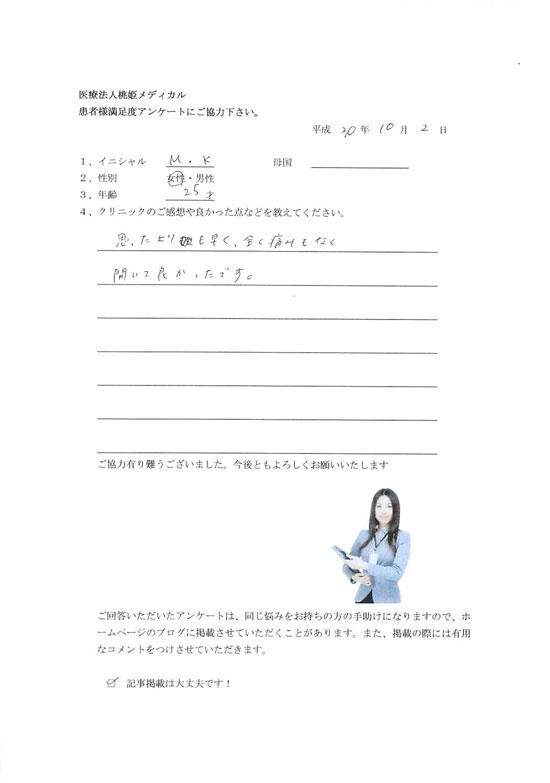 医療法人桃姫メディカル
患者様満足度アンケートにご協力下さい。
平成 20 年 10 月 2 日
1、イニシャル M・K 母国
2、性別 女性・男性
3、年齢 25才
4、クリニックのご感想や良かった点などを教えてください。
思ったよりも早く、全く痛みもなく
開いて良かったです。
ご協力有り難うございました。今後ともよろしくお願いいたします
ご回答いただいたアンケートは、同じ悩みをお持ちの方の手助けになりますので、ホ
ームページのブログに掲載させていただくことがあります。また、掲載の際には有用
なコメントをつけさせていただきます。
☑ 記事掲載は大丈夫です！